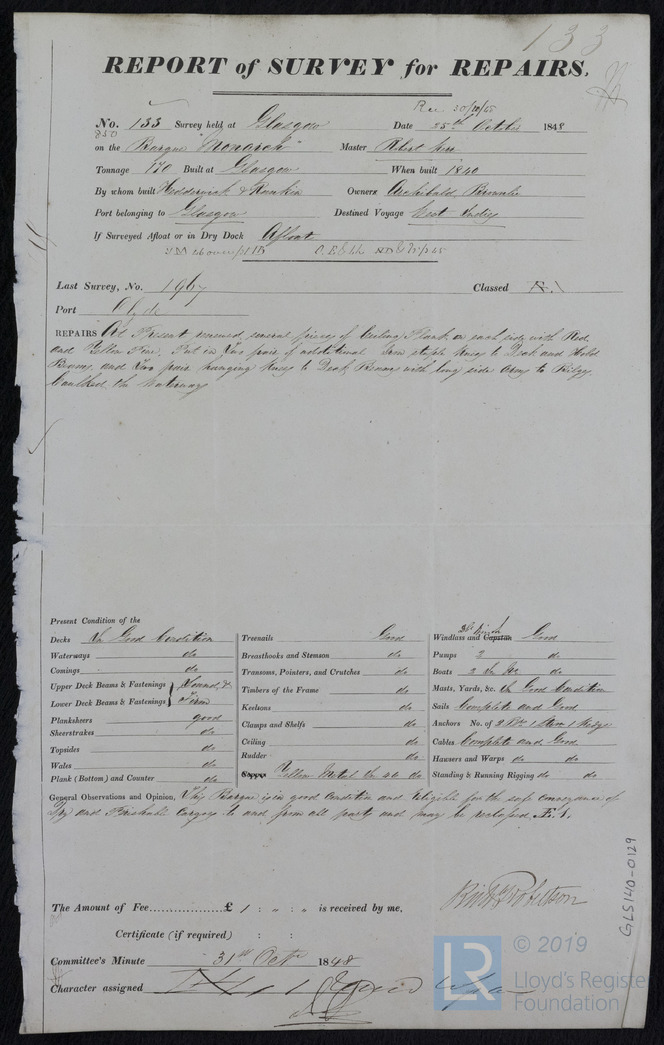 133
REPORT of SURVEY for REPAIRS.
Rec 30/10/48
No. 133 Survey held at Glasgow Date 25th October 1848
850
on the Barque "Monarch" Master Robert
Tonnage 170 Built at Glasgow When built 1840
By whom built Hedderwick & Rankin Owners Archibald Brownlie
Port belonging to Glasgow Destined Voyage West Indies
If Surveyed Afloat or in Dry Dock Afloat
Last Survey, No. 1967 Classed Æ.1
Port Clyde
REPAIRS At Present renewed, several pieces of Ceiling Plank on each side with Red
and Yellow Pine. Put in Two pair of additional Iron staple Knees to Deck and Hold
Beams, and Two pair hanging Knees to Deck Beams with long side Arms to Bilge,
Caulked the Waterways
Present Condition of the
Decks In Good Condition
Waterways do
Comings do
Upper Deck Beams & Fastenings } Sound, &
Lower Deck Beams & Fastenings } Firm
Planksheers good
Sheerstrakes do
Topsides do
Wales do
Plank (Bottom) and Counter do
Treenails Good
Breasthooks and Stemson do
Transoms, Pointers, and Crutches do
Timbers of the Frame do
Keelsons do
Clamps and Shelfs do
Ceiling do
Rudder do
Copper Yellow Metal In 46 do
Windlass and Capstan Good
Pumps 2 do
Boats 2 In No. do
Masts, Yards, &c. In Good Condition
Sails Complete and Good
Anchors No. of 2 Br. 1 Stream 1 Kedge
Cables Complete and Good
Hawsers and Warps do do
Standing & Running Rigging do do
General Observations and Opinion, This Barque is in good condition and Eligible for the safe conveyance of
Dry and Perishable Cargoes to and from all parts and may be reclassed Æ.1.
The Amount of Fee............... £ 1 : " : " is received by me,
Certificate (if required) : :
Robertson
Committee's Minute 31st Octr 1848
Character assigned
GLS140-0129
LR
© 2019
Lloyd's Register
Foundation